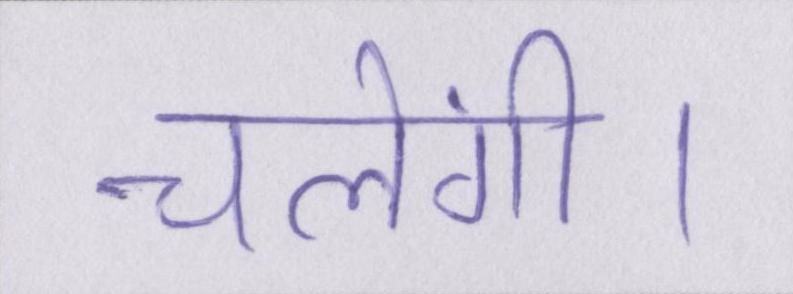 चलेंगी।